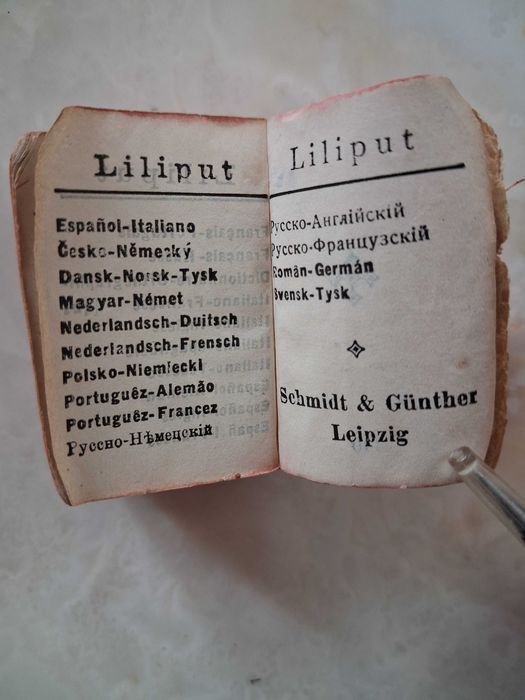 Liliput
Español-Italiano
Česko-Německý
Dansk-Norsk-Tysk
Magyar-Német
Nederlandsch-Duitsch
Nederlandsch-Frensch
Polsko-Niemiecki
Portuguêz-Alemão
Portuguêz-Francez
Руссно-Нѣмецскій
Liliput
Русско-Англійскій
Русско-Французскій
Român-Germán
Svensk-Tysk
Schmidt & Günther
Leipzig